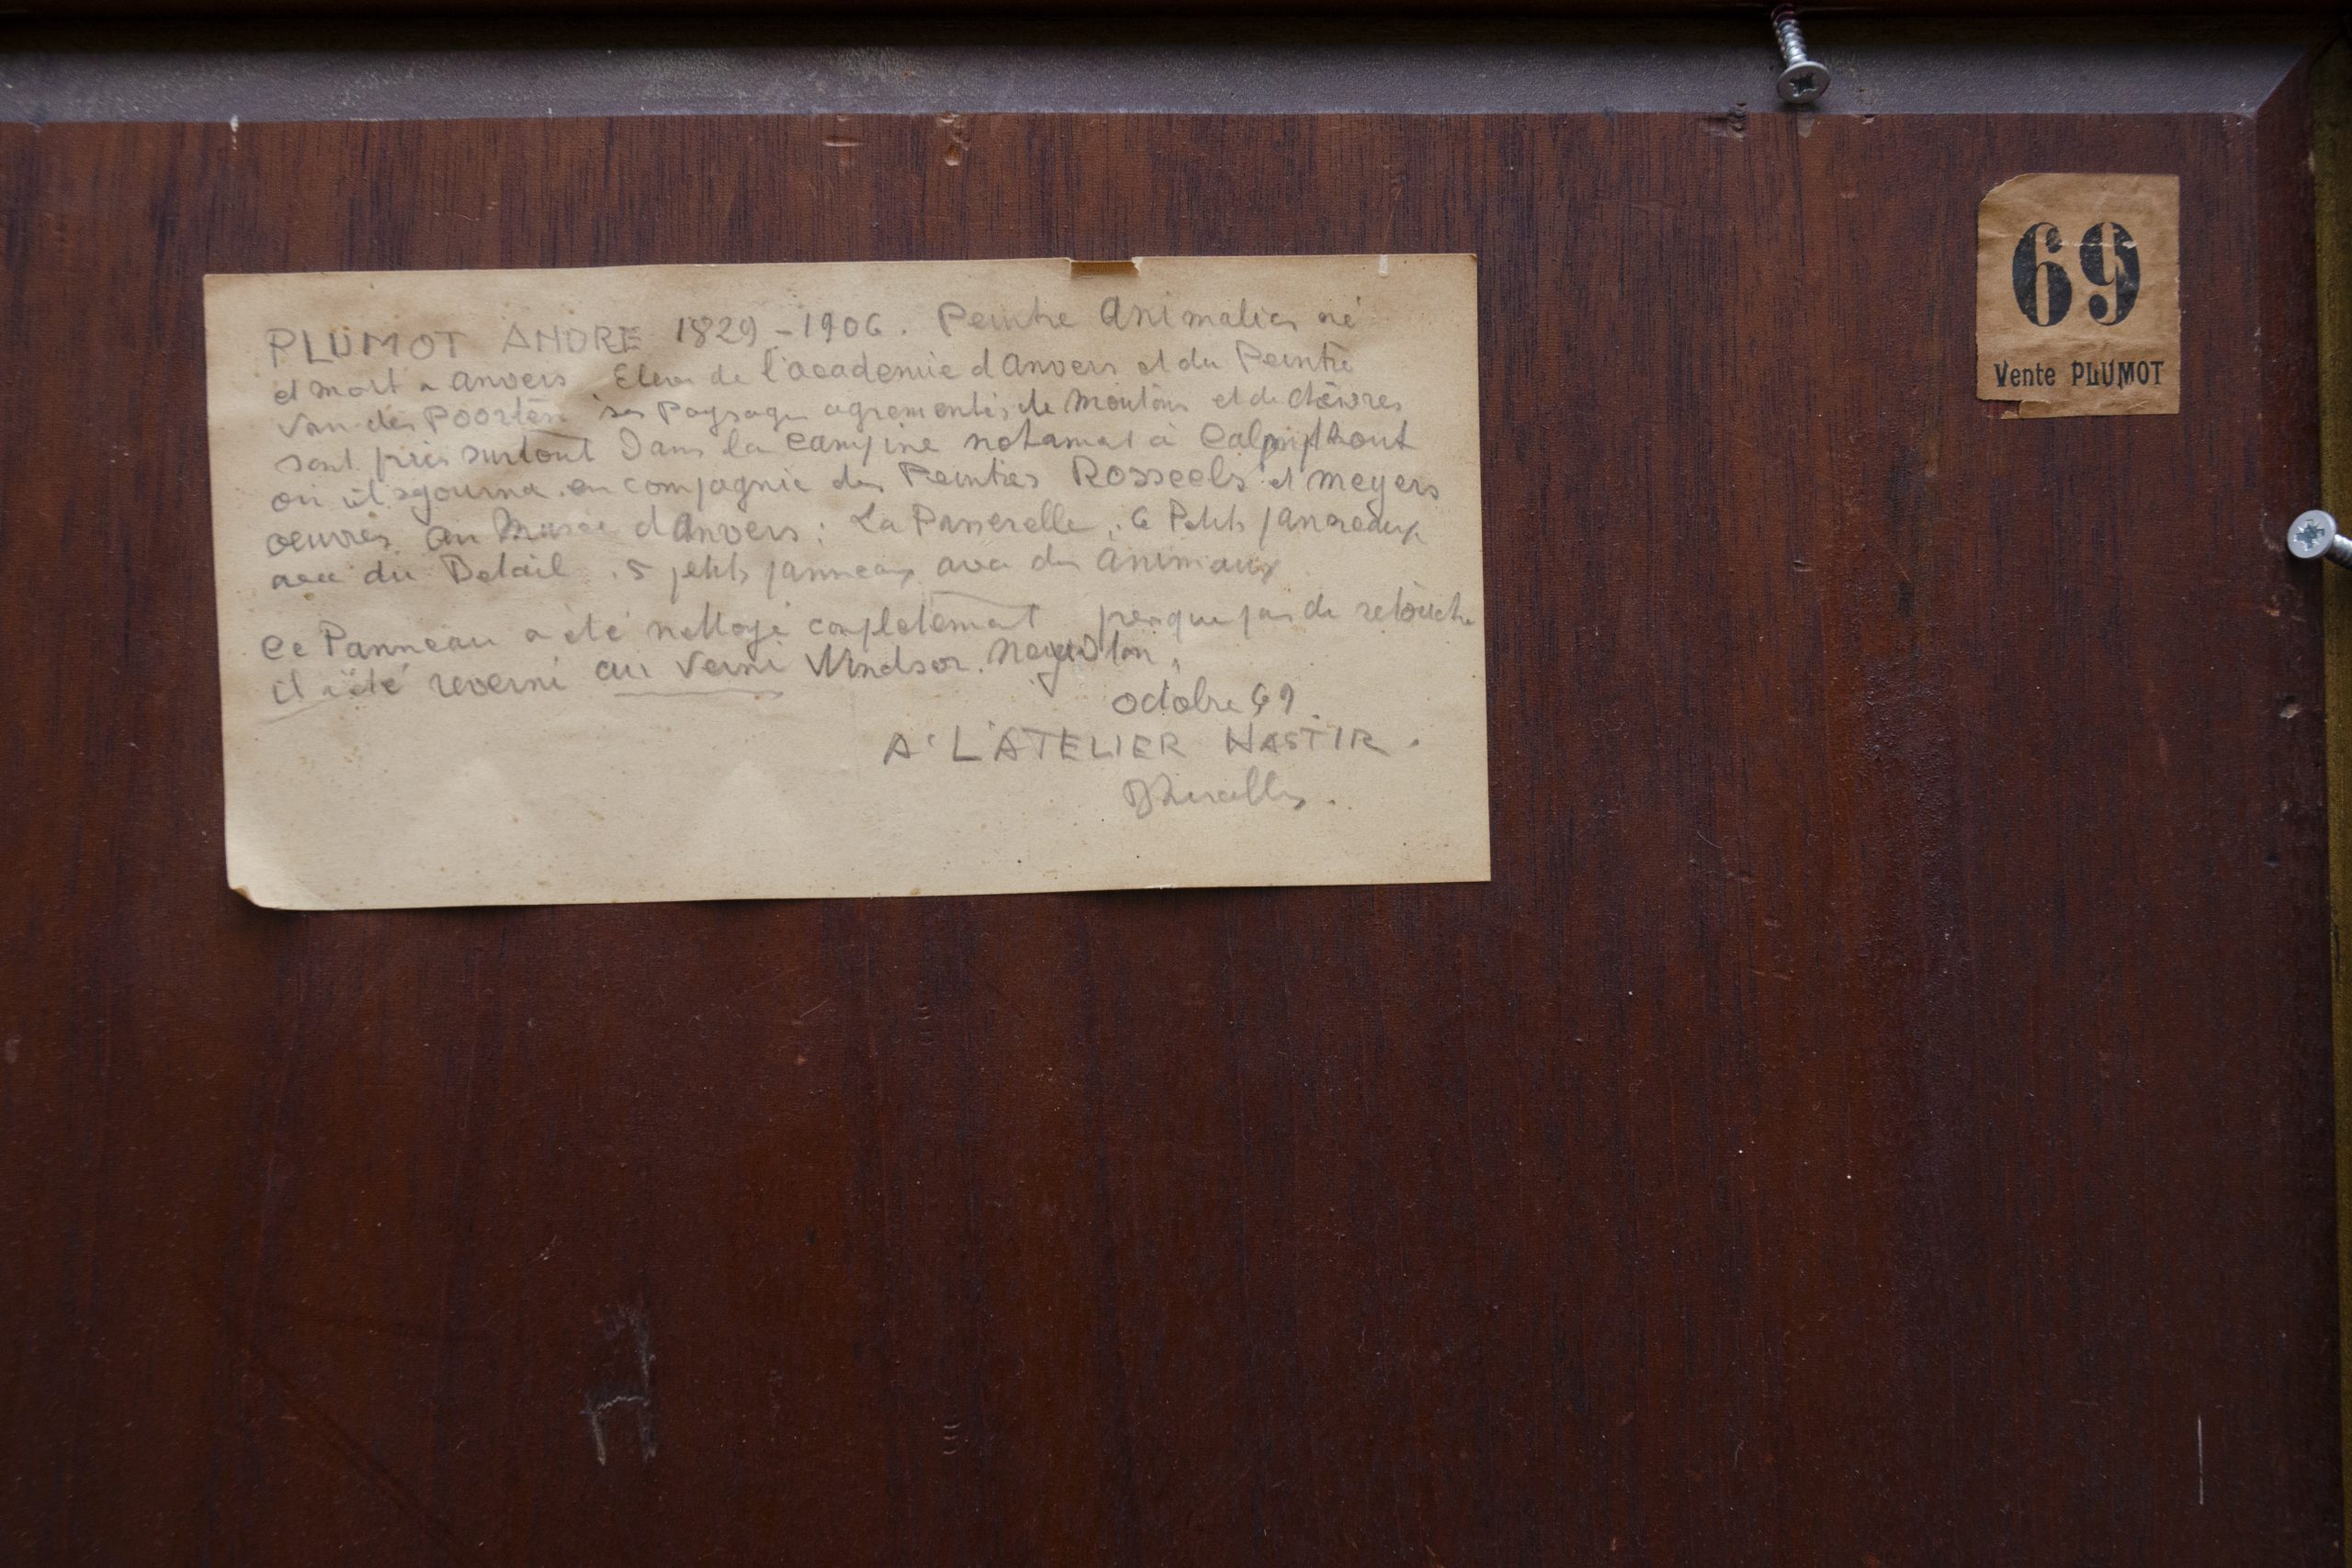 PLUMOT ANDRE 1829-1906. Peintre Animalier né
et mort a Anvers Eleve de l'academie d'Anvers et du Peintre
Van der Poorten ses Paysages agrementés de Moutons et de chèvres
sont pris surtout Dans la Campine notamant à Calmpthout
ou il sejourna en compagnie des Peintres Rosseels et Meyers
oeuvres Au Musée d'Anvers : La Passerelle, 6 Petits panneaux
avec du Betail . 5 petits panneaux avec des Animaux
Ce Panneau a été nettoyé completement presque pas de retouche
il a été reverni au Verni Windsor.
octobre 69
A L'ATELIER HASTIR.
Bruxelles.
69
Vente PLUMOT